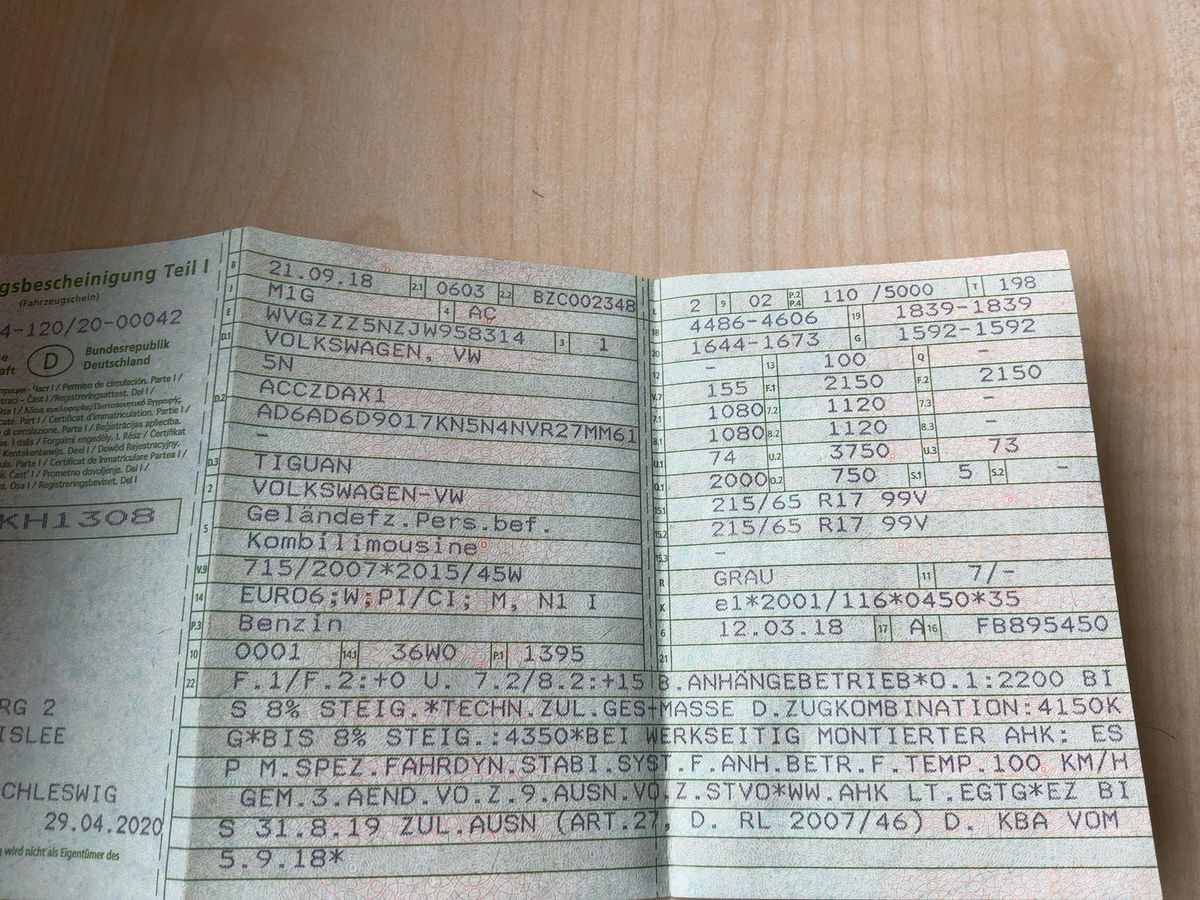 gsbescheinigung Teil I
(Fahrzeugschein)
4-120/20-00042
D
Bundesrepublik
Deutschland
KH1308
RG 2
ISLEE
CHLESWIG
29.04.2020
wird nicht als Eigentümer des
B 21.09.18 2.1 0603 2.2 BZC002348
J M1G 4 AC
E WVGZZZ5NZJW958314 3 1
D.1 VOLKSWAGEN, VW
5N
D.2 ACCZDAX1
AD6AD6D9017KN5N4NVR27MM61
–
D.3 TIGUAN
2 VOLKSWAGEN-VW
5 Geländefz.Pers.bef.
Kombilimousine
V.9 715/2007*2015/45W
14 EURO6;W;PI/CI; M, N1 I
P.3 Benzin
10 0001 14.1 36W0 P.1 1395
L 2 9 02 P.2 P.4 110 /5000 T 198
18 4486-4606 19 1839-1839
20 1644-1673 G 1592-1592
12 – 13 100 Q –
V.7 155 F.1 2150 F.2 2150
7.1 1080 7.2 1120 7.3 –
8.1 1080 8.2 1120 8.3 –
U.1 74 U.2 3750 U.3 73
O.1 2000 O.2 750 S.1 5 S.2 –
15.1 215/65 R17 99V
15.2 215/65 R17 99V
15.3 –
R GRAU 11 7/-
K e1*2001/116*0450*35
6 12.03.18 17 A 16 FB895450
21
22 F.1/F.2:+0 U. 7.2/8.2:+15 B.ANHÄNGEBETRIEB*O.1:2200 BI
S 8% STEIG.*TECHN.ZUL.GES-MASSE D.ZUGKOMBINATION:4150K
G*BIS 8% STEIG.:4350*BEI WERKSEITIG MONTIERTER AHK: ES
P M.SPEZ.FAHRDYN.STABI.SYST.F.ANH.BETR.F.TEMP.100 KM/H
GEM.3.AEND.VO.Z.9.AUSN.VO.Z.STVO*WW.AHK LT.EGTG*EZ BI
S 31.8.19 ZUL.AUSN (ART.27, D. RL 2007/46) D. KBA VOM
5.9.18*